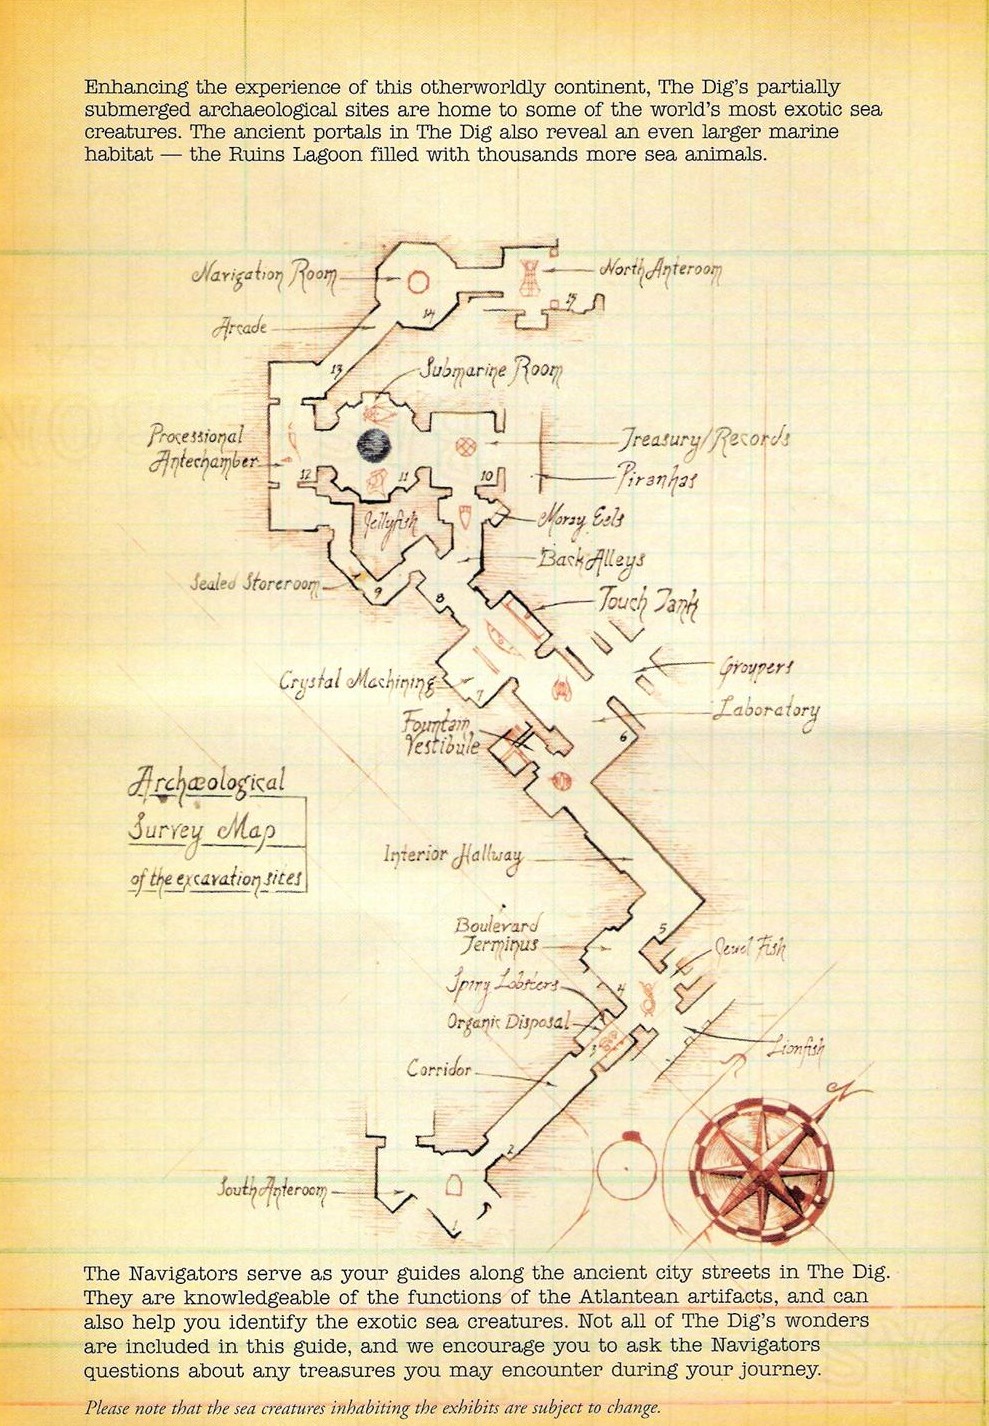 Enhancing the experience of this otherworldly continent, The Dig's partially
submerged archaeological sites are home to some of the world's most exotic sea
creatures. The ancient portals in The Dig also reveal an even larger marine
habitat — the Ruins Lagoon filled with thousands more sea animals.
Navigation Room
North Anteroom
15
14
Arcade
13
Submarine Room
Processional
Antechamber
Treasury/Records
12
11
10
Piranhas
Jellyfish
Moray Eels
Back Alleys
Sealed Storeroom
9
8
Touch Tank
Groupers
Crystal Machining
7
Laboratory
Fountain
Vestibule
6
Archæological
Survey Map
of the excavation sites
Interior Hallway
Boulevard
Terminus
5
Jewel Fish
Spiny Lobsters
4
Organic Disposal
3
Lionfish
Corridor
2
South Anteroom
1
N
The Navigators serve as your guides along the ancient city streets in The Dig.
They are knowledgeable of the functions of the Atlantean artifacts, and can
also help you identify the exotic sea creatures. Not all of The Dig's wonders
are included in this guide, and we encourage you to ask the Navigators
questions about any treasures you may encounter during your journey.
Please note that the sea creatures inhabiting the exhibits are subject to change.